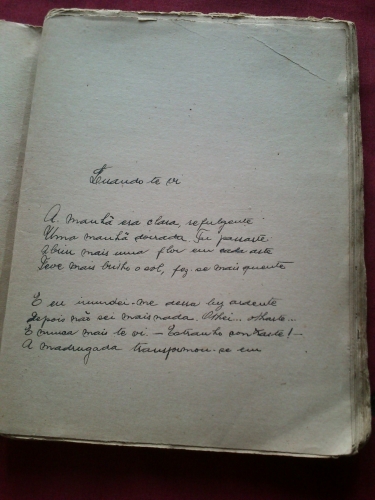 Quando te vi
A manhã era clara, refulgente.
Uma manhã doirada. Tu passaste
Abriu mais uma flor em cada aste
Teve mais brilho o sol, fez-se mais quente
E eu inundei-me dessa luz ardente
Depois não sei mais nada. Olhei... olhaste...
E nunca mais te vi — Estranho contraste! —
A madrugada transformou-se em